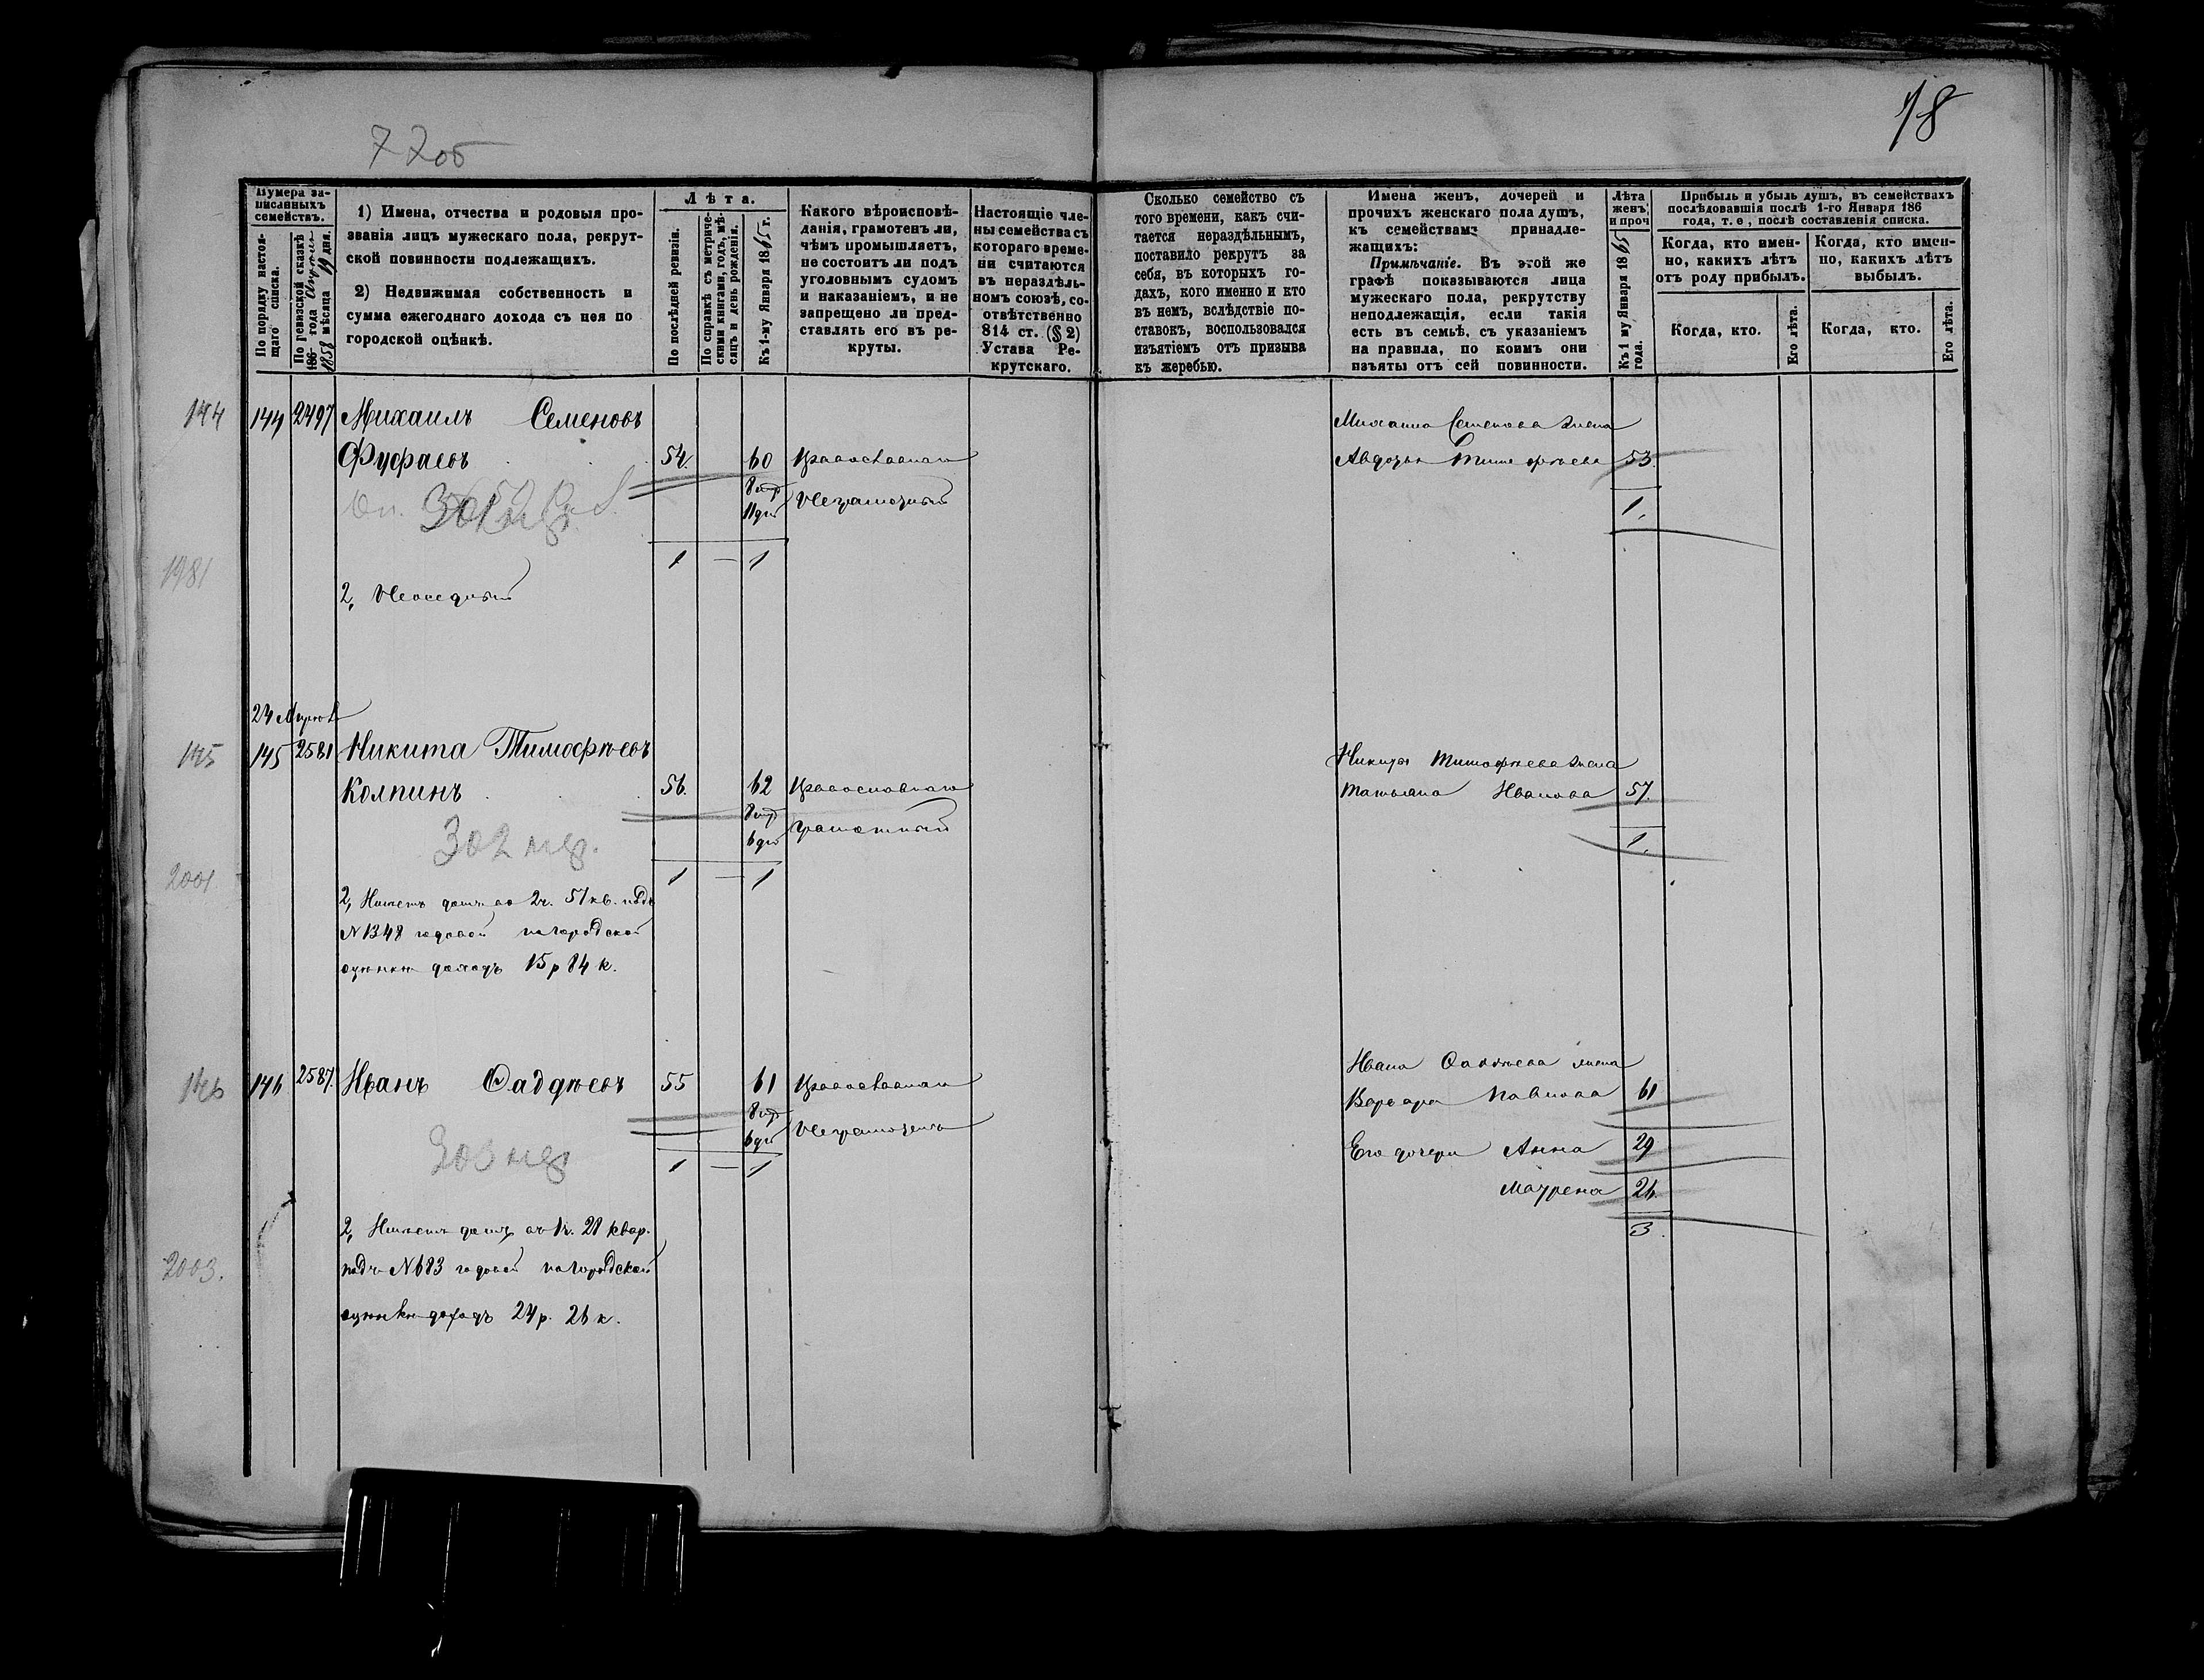 77об
78
Нумера за-
писанныхъ
семействъ.
По порядку настоя-
щаго списка.
По ревизской сказкѣ
186 года Апреля
1858 мѣсяца 19 дня.
1) Имена, отчества и родовыя про-
званія лицъ мужескаго пола, рекрут-
ской повинности подлежащихъ.
2) Недвижимая собственность и
сумма ежегоднаго дохода съ нея по
городской оцѣнкѣ.
Лѣта.
По послѣдней ревизіи.
По справкѣ съ метриче-
скими книгами, годъ, мѣ-
сяцъ и день рожденія.
Къ 1-му Января 1865 г.
Какого вѣроисповѣ-
данія, грамотенъ ли,
чѣмъ промышляетъ,
не состоитъ ли подъ
уголовнымъ судомъ
и наказаніемъ, и не
запрещено ли пред-
ставлять его въ ре-
круты.
Настоящіе чле-
ны семейства съ
котораго време-
ни считаются
въ нераздѣль-
номъ союзѣ, со-
отвѣтственно
814 ст. (§ 2)
Устава Ре-
крутскаго.
Сколько семейство съ
того времени, какъ счи-
тается нераздѣльнымъ,
поставило рекрутъ за
себя, въ которыхъ го-
дахъ, кого именно и кто
въ немъ, вслѣдствіе по-
ставокъ, воспользовался
изъятіемъ отъ призыва
къ жеребью.
Имена женъ, дочерей и
прочихъ женскаго пола душъ,
къ семействамъ принадле-
жащихъ:
Примѣчаніе. Въ этой же
графѣ показываются лица
мужескаго пола, рекрутству
неподлежащія, если такія
есть въ семьѣ, съ указаніемъ
на правила, по коимъ они
изъяты отъ сей повинности.
Лѣта
женъ
и проч
Къ 1 му Января 1865
года.
Прибыль и убыль душъ, въ семействахъ
послѣдовавшія послѣ 1-го Января 186
года, т. е, послѣ составленія списка.
Когда, кто имен-
но, какихъ лѣтъ
отъ роду прибылъ.
Когда, кто имен-
но, какихъ лѣтъ
выбылъ.
Когда, кто.
Его лѣта.
Когда, кто.
Его лѣта.
144 144 2497 Михаилъ Семеновъ
Михаила Семенова жена
Фуфаевъ 54. 60 Православнаго
Авдотья Тимофѣева 53.
8 мѣ
11 дн Неграмотный
1.
1 — 1
1981
2, Неоседлый
145 145 2581 Никита Тимофѣевъ
Никиты Тимофѣева жена
Колпинъ 56. 62 Православнаго
Татьяна Иванова 57.
8 мѣ
6 дн грамотный
302 мѣ.
1.
1 — 1
2001
2, Имѣетъ домъ во 2ч. 51 кв. подъ
N 1348 годовой по городской
оценки доходъ 15 р 84 к.
Ивана Фаддѣева жена
146 146 2587. Иванъ Фаддѣевъ 55 61 Православнаго
Варвара Павлова 61
8 мѣ
6 дн Неграмотенъ
Его дочери Анна 29
1 — 1
26.
3.
2, Имѣетъ домъ въ 1ч. 21 квар.
подъ N 683 годовой по городской
2003.
оценки доходъ 24 р. 26 к.